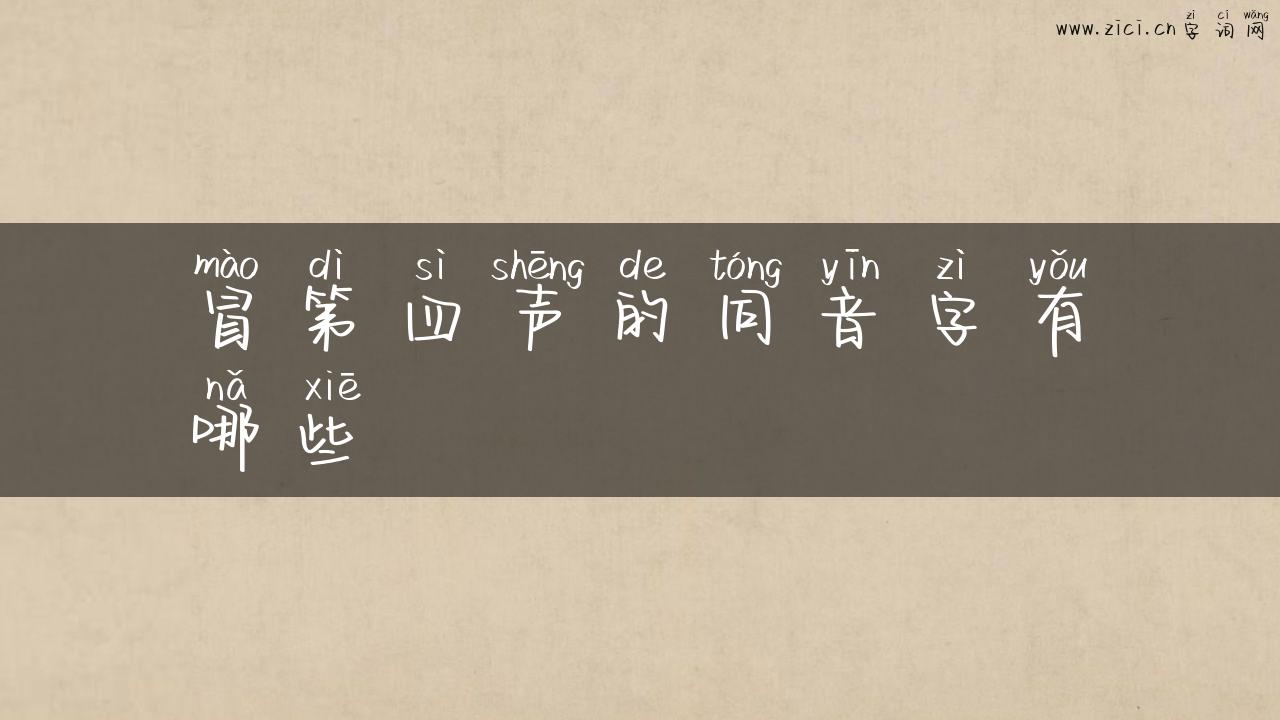 zì cí wǎng
www.zici.cn字词网
mào dì sì shēng de tóng yīn zì yǒu
冒第四声的同音字有
nǎ xiē
哪些